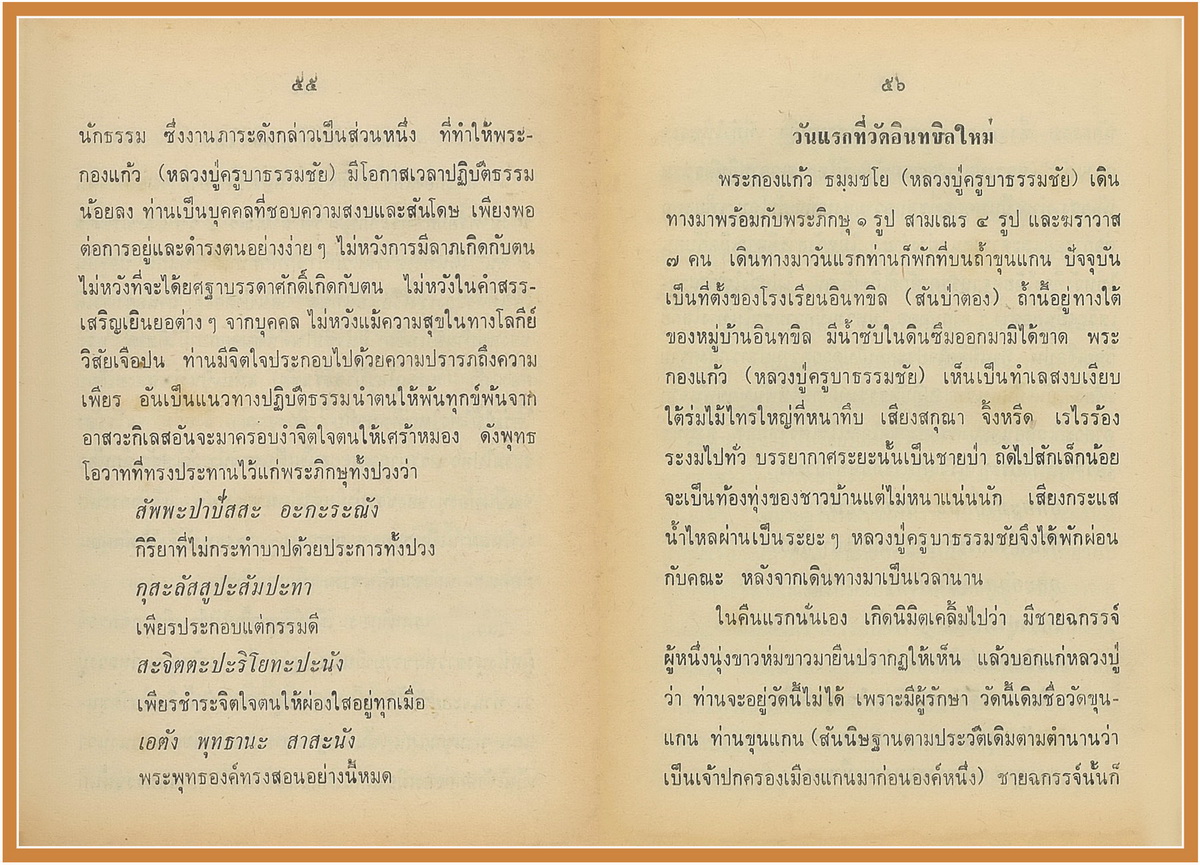 ๕๕
นักธรรม ซึ่งงานภาระดังกล่าวเป็นส่วนหนึ่ง ที่ทำให้พระ-
กองแก้ว (หลวงปู่ครูบาธรรมชัย) มีโอกาสเวลาปฏิบัติธรรม
น้อยลง ท่านเป็นบุคคลที่ชอบความสงบและสันโดษ เพียงพอ
ต่อการอยู่และดำรงตนอย่างง่ายๆ ไม่หวังการมีลาภเกิดกับตน
ไม่หวังที่จะได้ยศฐาบรรดาศักดิ์เกิดกับตน ไม่หวังในคำสรร-
เสริญเยินยอต่างๆ จากบุคคล ไม่หวังแม้ความสุขในทางโลกีย์
วิสัยเจือปน ท่านมีจิตใจประกอบไปด้วยความปรารภถึงความ
เพียร อันเป็นแนวทางปฏิบัติธรรมนำตนให้พ้นทุกข์พ้นจาก
อาสวะกิเลสอันจะมาครอบงำจิตใจตนให้เศร้าหมอง ดังพุทธ
โอวาทที่ทรงประทานไว้แก่พระภิกษุทั้งปวงว่า
สัพพะปาปัสสะ อะกะระณัง
กิริยาที่ไม่กระทำบาปด้วยประการทั้งปวง
กุสะลัสสูปะสัมปะทา
เพียรประกอบแต่กรรมดี
สะจิตตะปะริโยทะปะนัง
เพียรชำระจิตใจตนให้ผ่องใสอยู่ทุกเมื่อ
เอตัง พุทธานะ สาสะนัง
พระพุทธองค์ทรงสอนอย่างนี้หมด
๕๖
วันแรกที่วัดอินทขิลใหม่
พระกองแก้ว ธมฺมชโย (หลวงปู่ครูบาธรรมชัย) เดิน
ทางมาพร้อมกับพระภิกษุ ๑ รูป สามเณร ๔ รูป และฆราวาส
๗ คน เดินทางมาวันแรกท่านก็พักที่บนถ้ำขุนแกน ปัจจุบัน
เป็นที่ตั้งของโรงเรียนอินทขิล (สันป่าตอง) ถ้ำนี้อยู่ทางใต้
ของหมู่บ้านอินทขิล มีน้ำซับในดินซึมออกมามิได้ขาด พระ
กองแก้ว (หลวงปู่ครูบาธรรมชัย) เห็นเป็นทำเลสงบเงียบ
ใต้ร่มไม้ไทรใหญ่ที่หนาทึบ เสียงสกุณา จิ้งหรีด เรไรร้อง
ระงมไปทั่ว บรรยากาศระยะนั้นเป็นชายป่า ถัดไปสักเล็กน้อย
จะเป็นท้องทุ่งของชาวบ้านแต่ไม่หนาแน่นนัก เสียงกระแส
น้ำไหลผ่านเป็นระยะๆ หลวงปู่ครูบาธรรมชัยจึงได้พักผ่อน
กับคณะ หลังจากเดินทางมาเป็นเวลานาน
ในคืนแรกนั่นเอง เกิดนิมิตเคลิ้มไปว่า มีชายฉกรรจ์
ผู้หนึ่งนุ่งขาวห่มขาวมายืนปรากฏให้เห็น แล้วบอกแก่หลวงปู่
ว่า ท่านจะอยู่วัดนี้ไม่ได้ เพราะมีผู้รักษา วัดนี้เดิมชื่อวัดขุน-
แกน ท่านขุนแกน (สันนิษฐานตามประวัติเดิมตามตำนานว่า
เป็นเจ้าปกครองเมืองแกนมาก่อนองค์หนึ่ง) ชายฉกรรจ์นั้นก็